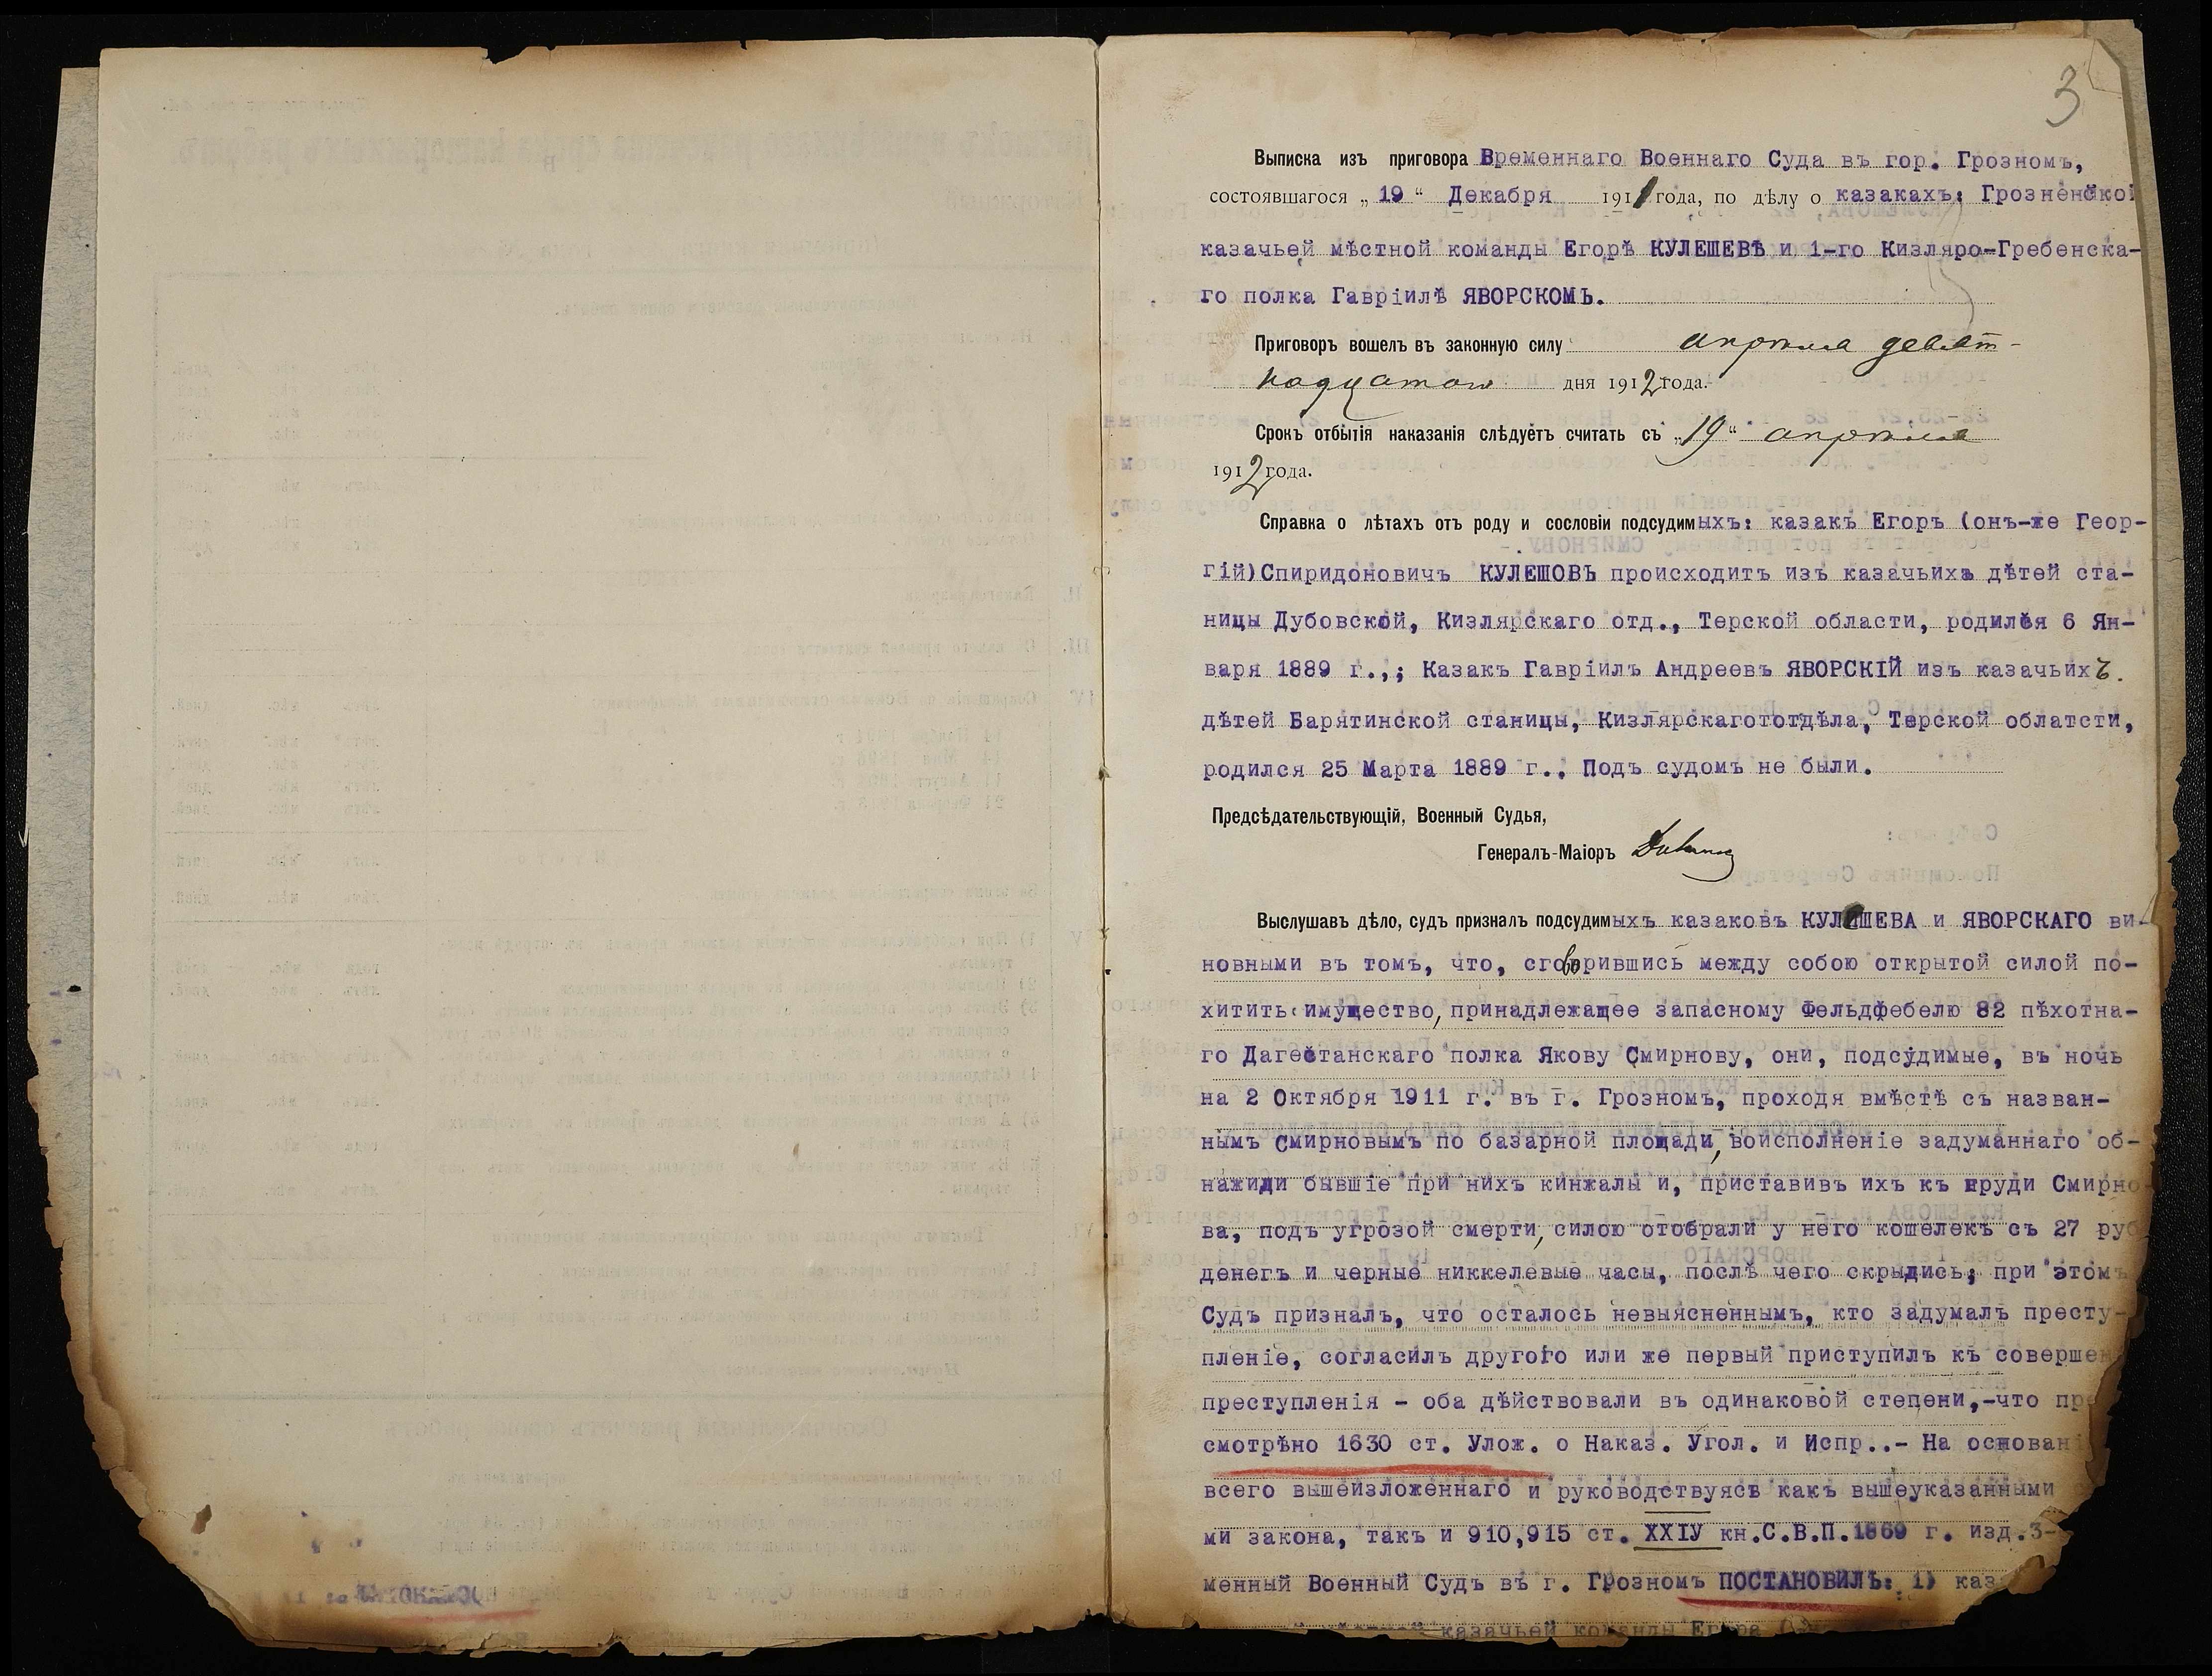 3
Выписка изъ приговора Временнаго Военнаго Суда въ гор. Грозномъ,
состоявшагося „ 19 “ Декабря 1911 года, по дѣлу о казакахъ: Грозненской
казачьей мѣстной команды Егорѣ КУЛЕШЕВѢ и 1-го Кизляро-Гребенска-
го полка Гавріилѣ ЯВОРСКОМЪ.
Приговоръ вошелъ въ законную силу апрѣля девят-
надцатаго дня 1912 года.
Срокъ отбытія наказанія слѣдуетъ считать съ „19“ апрѣля
1912 года.
Справка о лѣтахъ отъ роду и сословіи подсудимыхъ: казакъ Егоръ (онъ-же Геор-
гій)Спиридоновичъ КУЛЕШОВЪ происходитъ изъ казачьихъ дѣтей ста-
ницы Дубовской, Кизлярскаго отд., Терской области, родился 6 Ян-
варя 1889 г.,; Казакъ Гавріилъ Андреевъ ЯВОРСКІЙ изъ казачьихъ.
дѣтей Барятинской станицы, Кизлярскагототдѣла, Терской облатсти,
родился 25 Марта 1889 г.. Подъ судомъ не были.
Предсѣдательствующій, Военный Судья,
Генералъ-Маіоръ
Выслушавъ дѣло, судъ призналъ подсудимыхъ казаковъ КУЛЕШЕВА и ЯВОРСКАГО ви-
новными въ томъ, что, сговорившись между собою открытой силой по-
хитить имущество, принадлежащее запасному Фельдфебелю 82 пѣхотна-
го Дагестанскаго полка Якову Смирнову, они, подсудимые, въ ночь
на 2 Октября 1911 г. въ г. Грозномъ, проходя вмѣстѣ съ назван-
нымъ Смирновымъ по базарной площади, воисполненіе задуманнаго об-
нажиди бывшіе при нихъ кинжалы и, приставивъ ихъ къ груди Смирно
ва, подъ угрозой смерти, силою отобрали у него кошелекъ съ 27 руб
денегъ и черные никкелевые часы, послѣ чего скрыдись; при этомъ
Судъ призналъ, что осталось невыясненнымъ, кто задумалъ престу-
пленіе, согласилъ другого или же первый приступилъ къ совершен
преступленія - оба дѣйствовали въ одинаковой степени,-что пр
смотрѣно 1630 ст. Улож. о Наказ. Угол. и Испр..- На основані
всего вышеизложеннаго и руководствуясь какъ вышеуказанными
ми закона, такъ и 910,915 ст. XXIУ кн.С.В.П.1869 г. изд.3-
менный Военный Судъ въ г. Грозномъ ПОСТАНОВИЛЪ: 1) каз
казачьей команды Егора